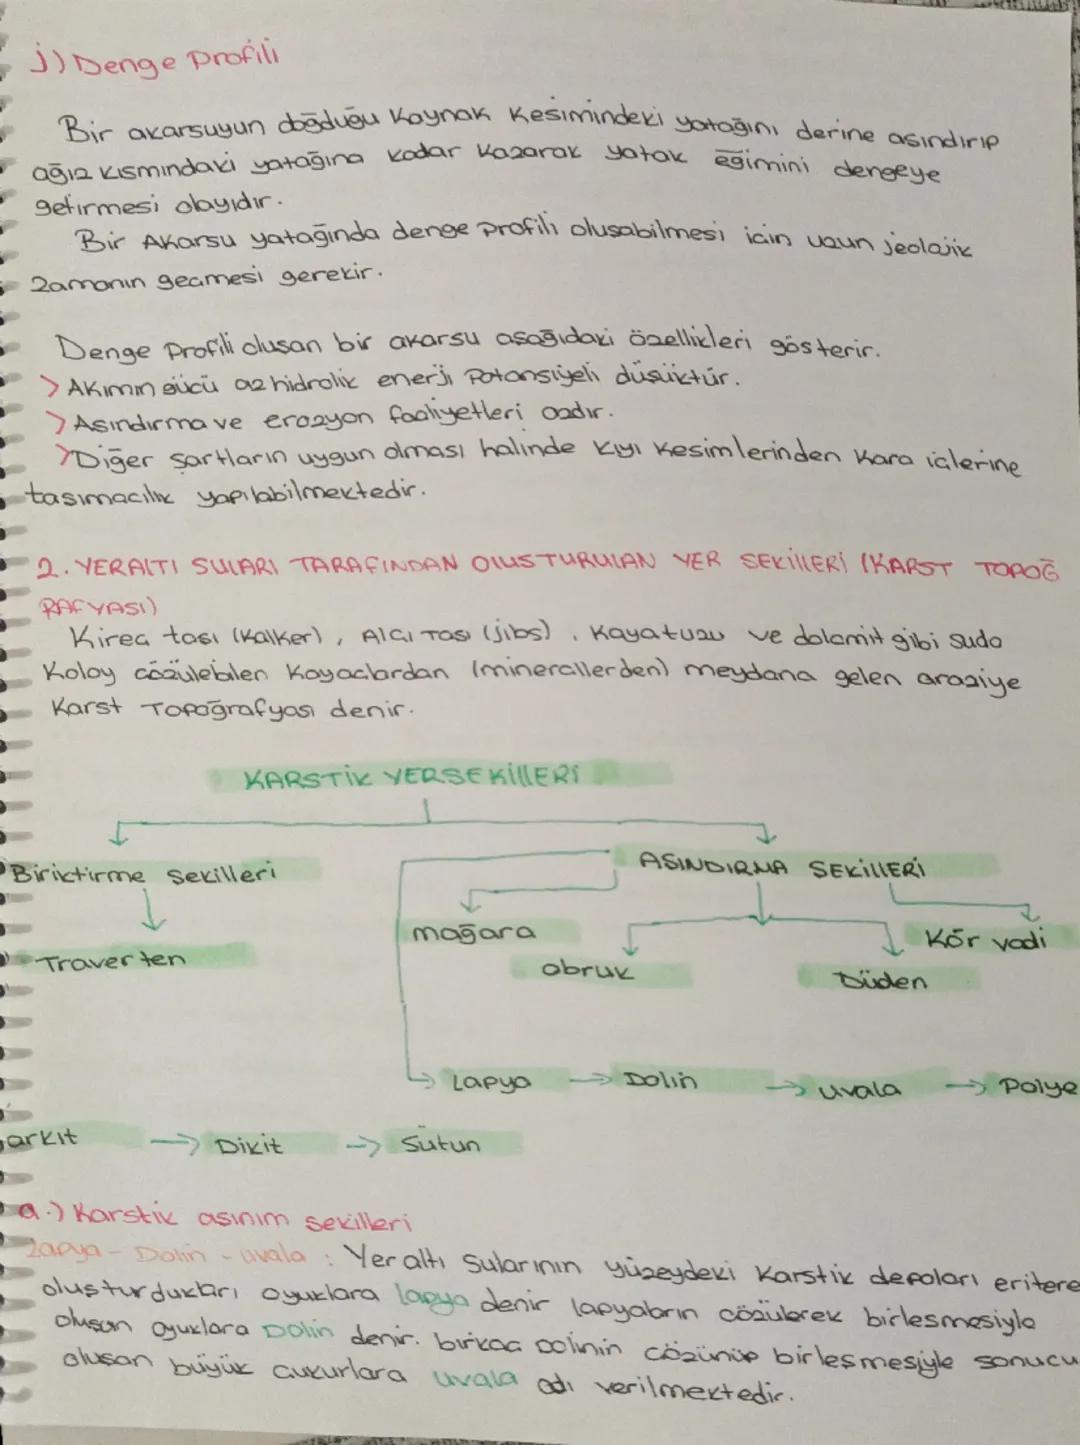 j) Denge Profili
Bir akarsuyun doğduğu kaynak kesimindeki yatağını derine asındırıp
ağız kısmındaki yatağına kadar kazarak yatak eğimini dengeye
getirmesi olayıdır.
Bir Akarsu yatağında denge profili olusabilmesi icin uzun jeolojik
zamanın gecmesi gerekir.
Denge Profili olusan bir akarsu asağıdaki özellikleri gösterir.
> Akımın gücü az hidrolik enerji Potansiyeli düsüktür.
> Asındırma ve erozyon faaliyetleri azdır.
> Diğer sartların uygun olması halinde kıyı kesimlerinden kara iclerine
tasımacılık yapılabilmektedir.
2. YERALTI SULARI TARAFINDAN OLUSTURULAN YER SEKİLLERİ (KARST TOPOĞ
RAFYASI)
Kirec tası (Kalker), Alcı Tası (jibs), Kayatuzu ve dolomit gibi suda
Kolay cözülebilen Kayaclardan (minerallerden) meydana gelen araziye
Karst Topoğrafyası denir.
KARSTİK YERSEKİLLERİ
Biriktirme Sekilleri
ASINDIRMA SEKİLLERİ
mağara
Kör vadi
Traverten
obruk
Düden
Lapya → Dolin → uvala → Polye
arkıt → Dikit → Sütun
a.) Karstik asınım sekilleri
Lapya - Dolin - uvala : Yer altı sularının yüzeydeki Karstik depoları eritere
oluşturdukları oyuklara lapya denir lapyaların cözülerek birlesmesiyle
olusan oyuklara Dolin denir. birkac Dolinin cözünüp birleşmesiyle sonucu
olusan büyük cukurlara uvala adı verilmektedir.